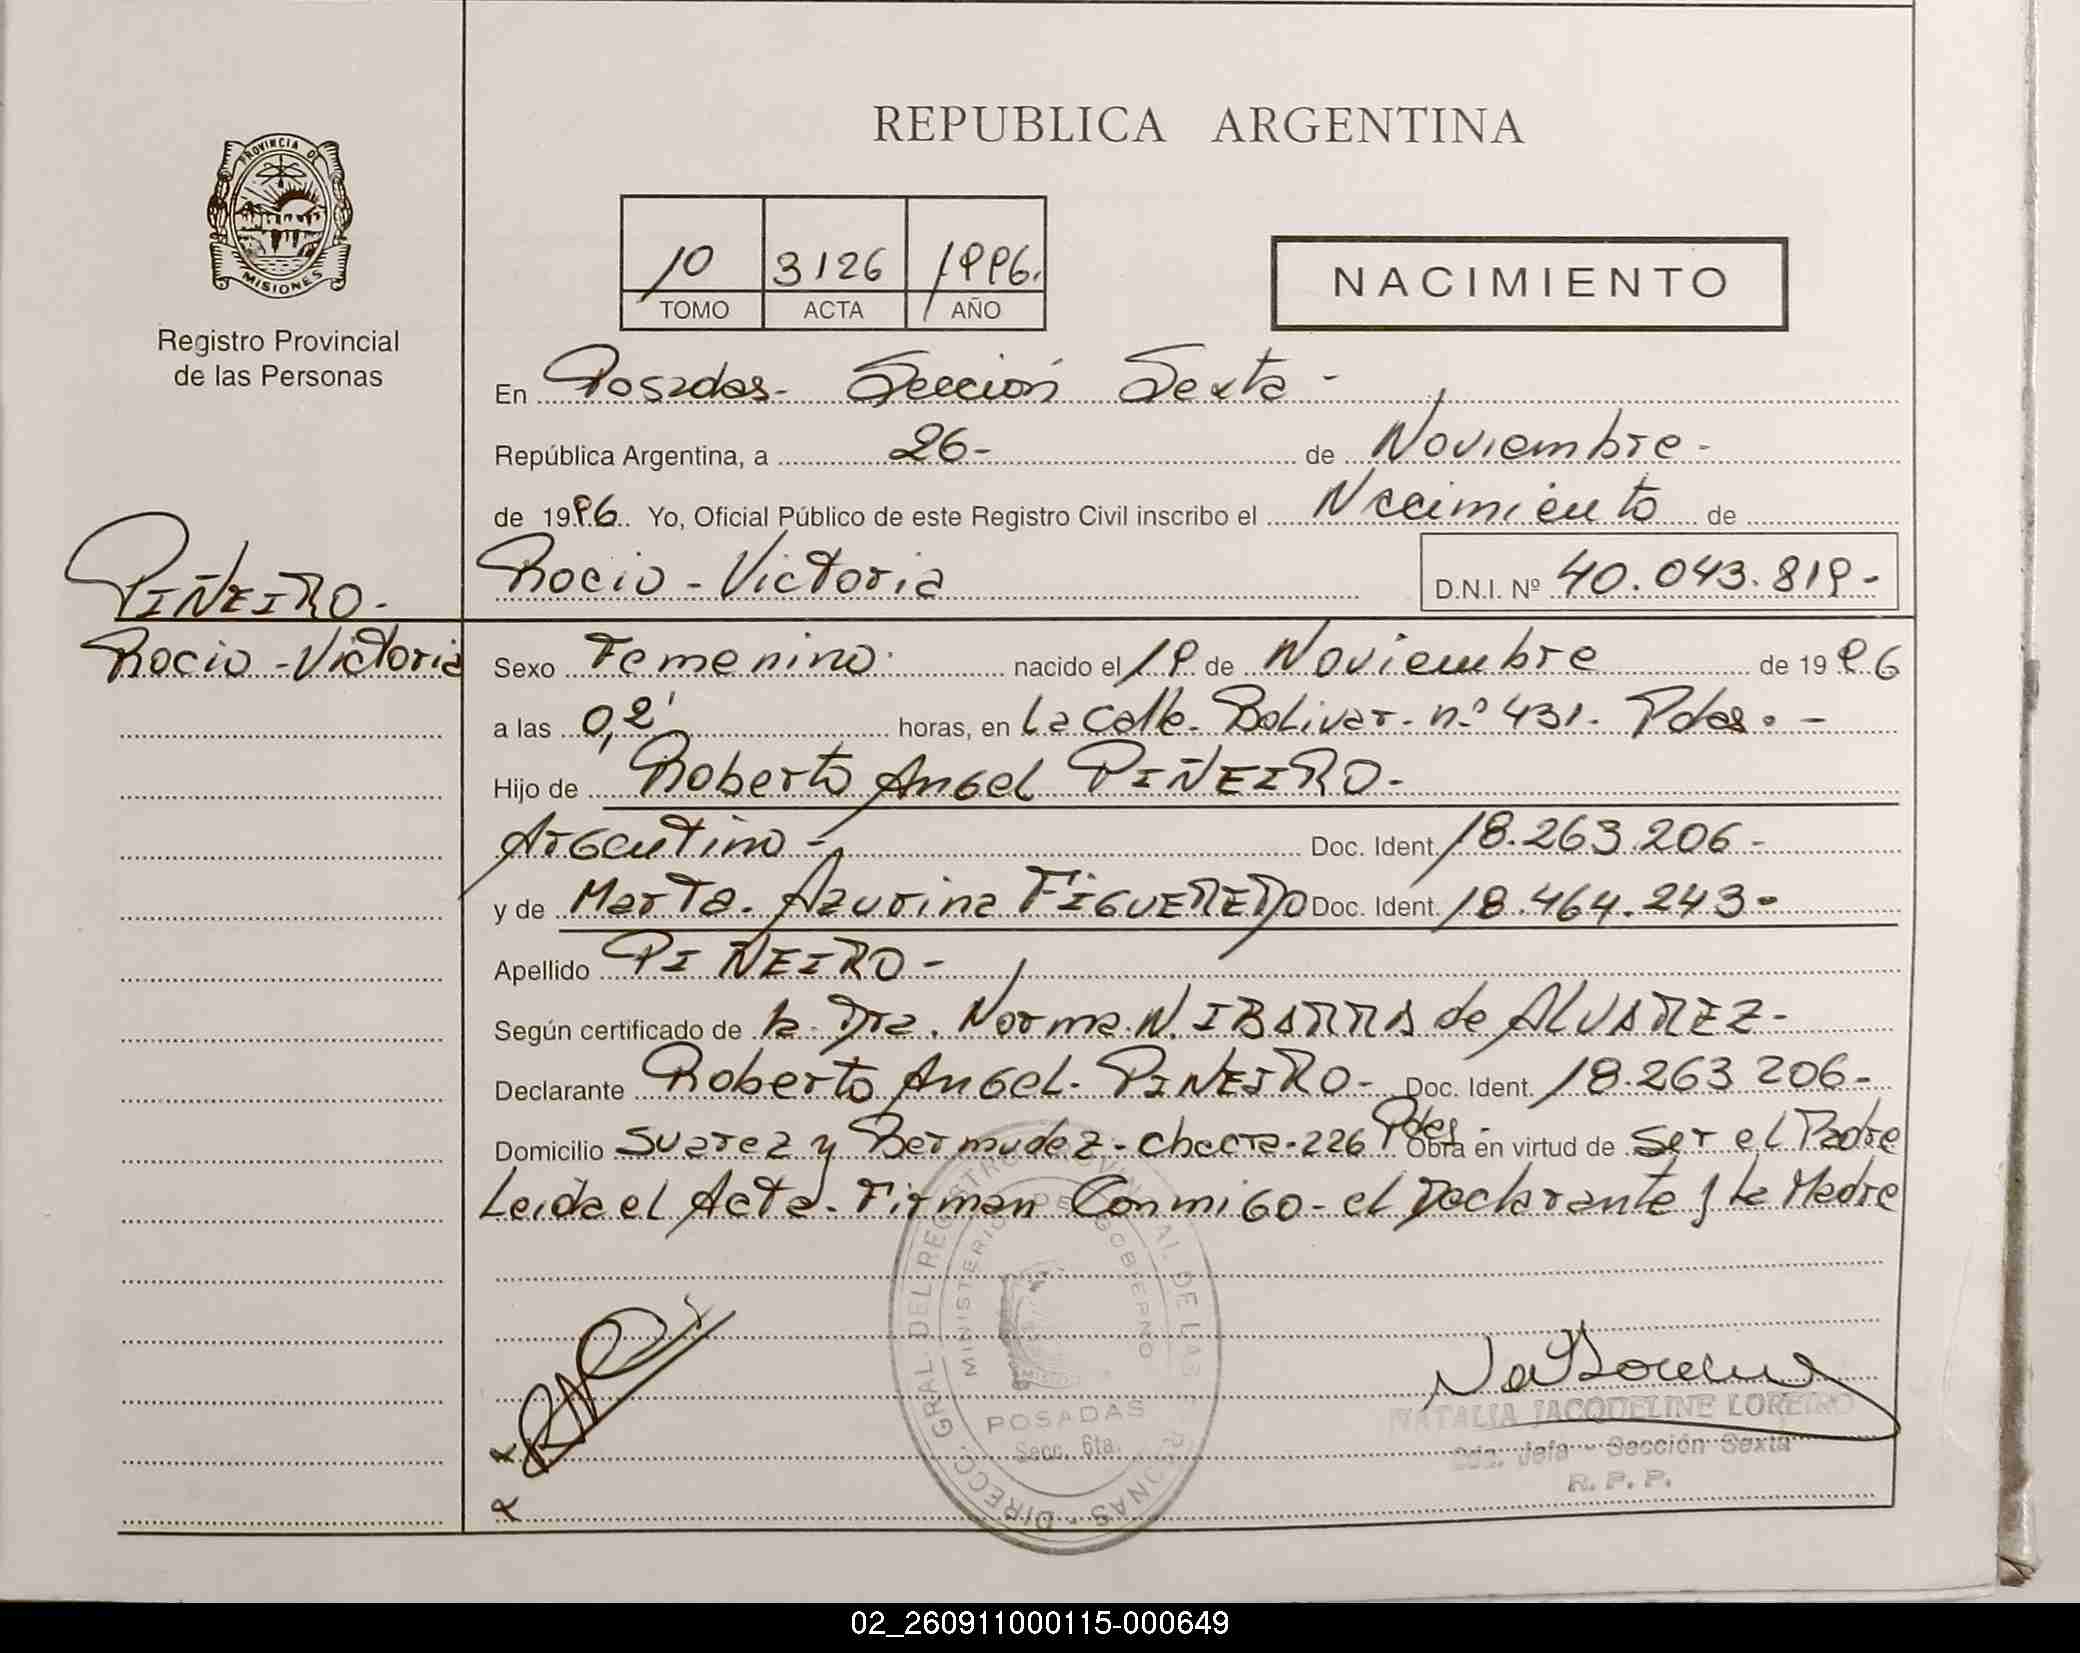 REPUBLICA ARGENTINA
PROVINCIA DE
MISIONES
Registro Provincial
de las Personas
10 3126 1996.
TOMO ACTA AÑO
NACIMIENTO
En Posadas- Sección Sexta -
República Argentina, a 26- de Noviembre-
de 1996. Yo, Oficial Público de este Registro Civil inscribo el Nacimiento de
Rocio - Victoria D.N.I. Nº 40.043.819-
PIÑEIRO-
Rocio - Victoria
Sexo Femenino. nacido el 19 de Noviembre de 1996
a las 0,2' horas, en La Calle- Bolivar- n.º 431. Pdas. -
Hijo de Roberto Angel PIÑEIRO-
Argentino - Doc. Ident. 18.263.206-
y de Marta. Azurina FIGUEREDO Doc. Ident. 18.464.243-
Apellido PIÑEIRO-
Según certificado de la Dra. Norma N. IBARRA de ALVAREZ-
Declarante Roberto Angel- PIÑEIRO- Doc. Ident. 18.263 206-
Domicilio Suarez y Bermudez- chacra-226 Pdas- Obra en virtud de Ser el Padre
Leida el Acta. Firman Conmigo- el Declarante y la Madre
DIRECC. GRAL. DEL REGISTRO PROVINCIAL DE LAS PERSONAS
MINISTERIO DE GOBIERNO
POSADAS
Secc. 6ta.
NATALIA JACQUELINE LOREIRO
Jefa - Sección Sexta
R. P. P.
02_260911000115-000649